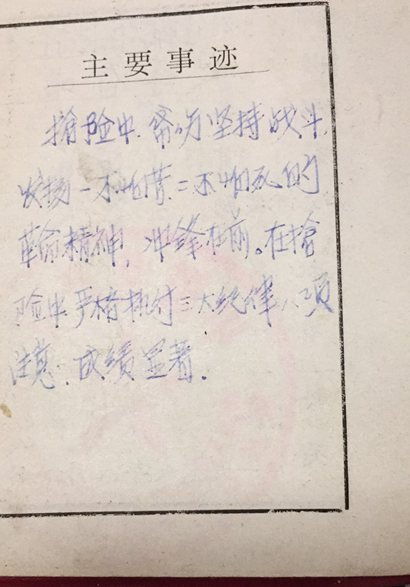 主要事迹
抢险中.带病坚持战斗.
发扬一不怕苦二不怕死的
革命精神,冲锋在前。在抢
险中严格执行三大纪律八项
注意.成绩显著.